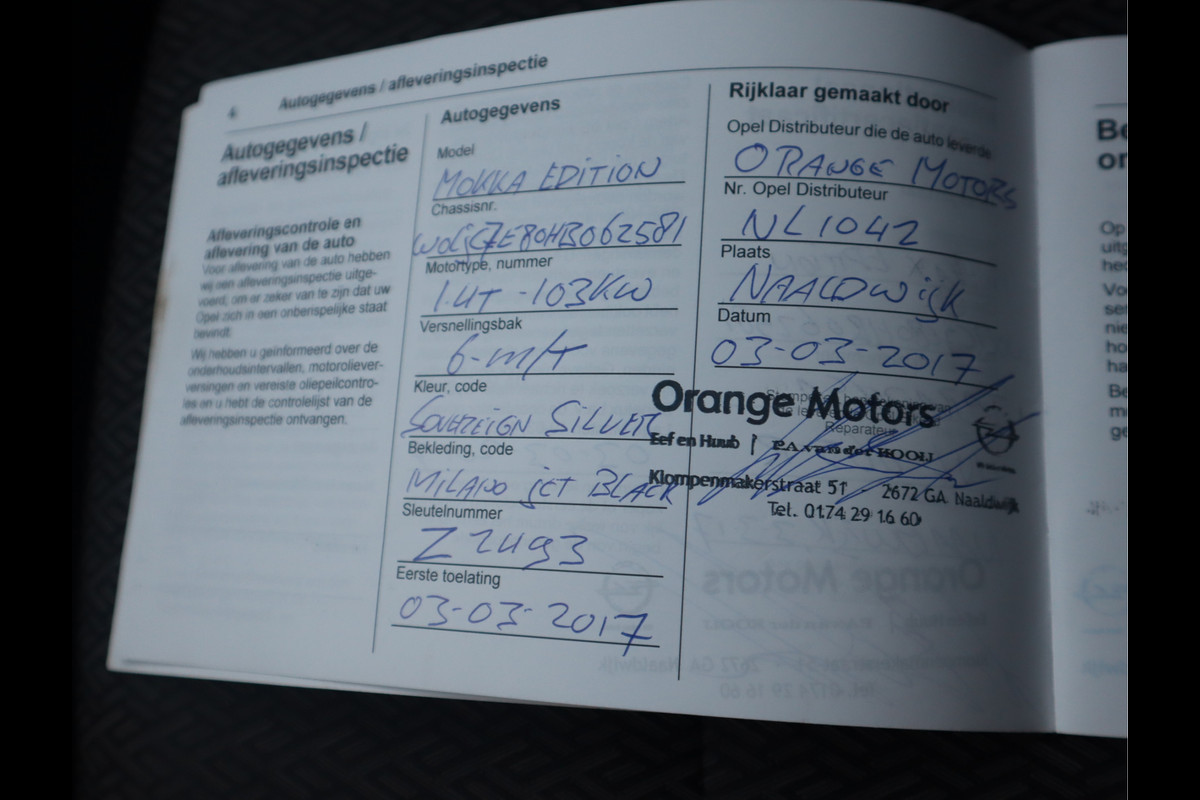 4
Autogegevens / afleveringsinspectie
Autogegevens /
afleveringsinspectie
Afleveringscontrole en
aflevering van de auto
Voor aflevering van de auto hebben
wij een afleveringsinspectie uitge-
voerd, om er zeker van te zijn dat uw
Opel zich in een onberispelijke staat
bevindt.
Wij hebben u geïnformeerd over de
onderhoudsintervallen, motoroliever-
versingen en vereiste oliepeilcontro-
les en u hebt de controlelijst van de
afleveringsinspectie ontvangen.
Autogegevens
Model
MOKKA EDITION
Chassisnr.
Motortype, nummer
1.4T - 103KW
Versnellingsbak
6-m/T
Kleur, code
SOVEREIGN SILVER
Bekleding, code
MILANO JET BLACK
Sleutelnummer
Z2493
Eerste toelating
03-03-2017
Rijklaar gemaakt door
Opel Distributeur die de auto leverde
ORANGE MOTORS
Nr. Opel Distributeur
NL1042
Plaats
NAALDWIJK
Datum
03-03-2017
Orange Motors
Reparateur
Eef en Huub
Klompenmakerstraat 51 - 2672 GA Naaldwijk
Tel. 0174 29 16 60